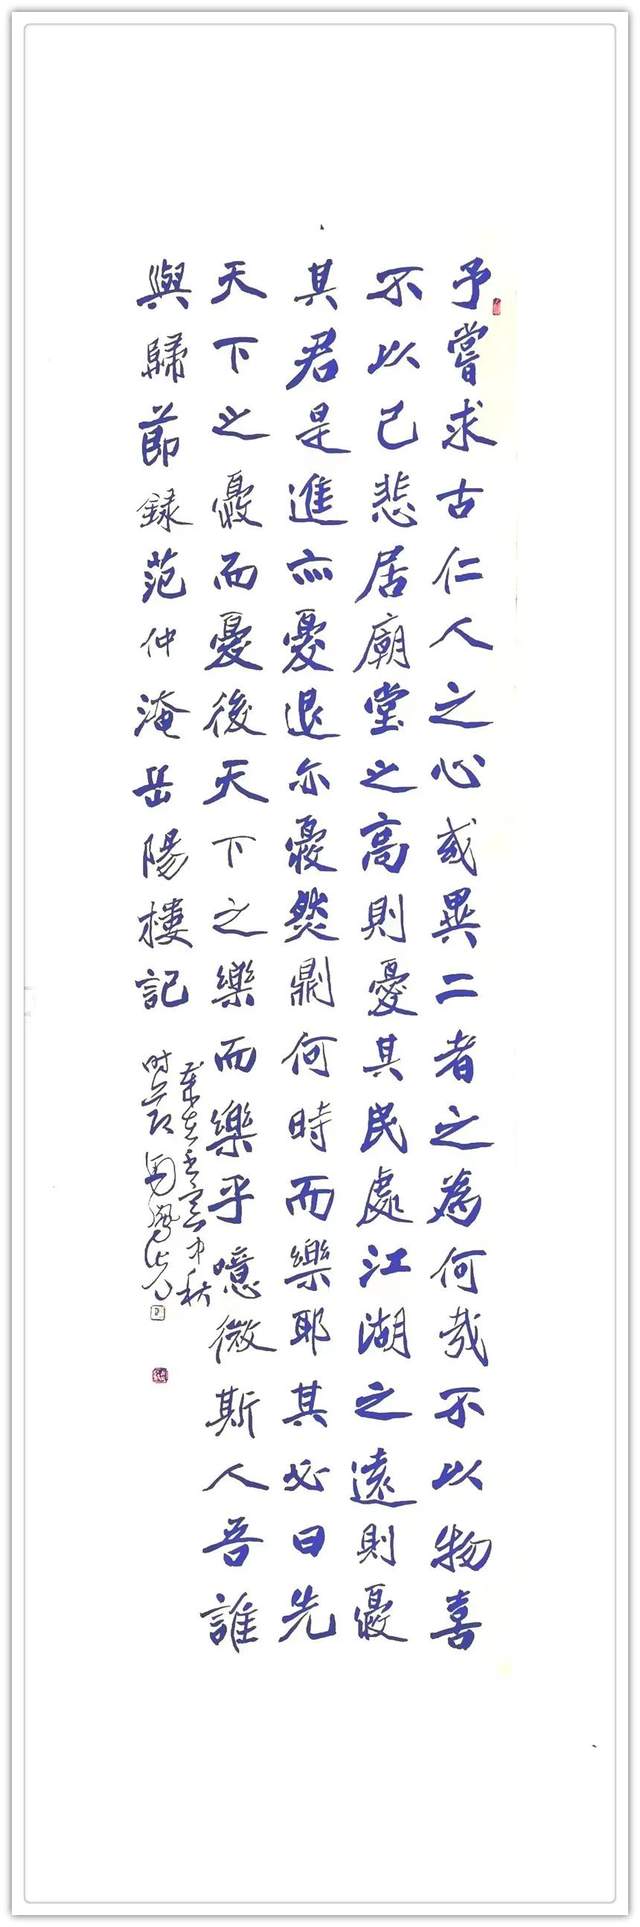 予嘗求古仁人之心或異二者之為何哉不以物喜
不以己悲居廟堂之高則憂其民處江湖之遠則憂
其君是進亦憂退亦憂然則何時而樂耶其必曰先
天下之憂而憂後天下之樂而樂乎噫微斯人吾誰
與歸節録范仲淹岳陽樓記
歲在壬寅中秋